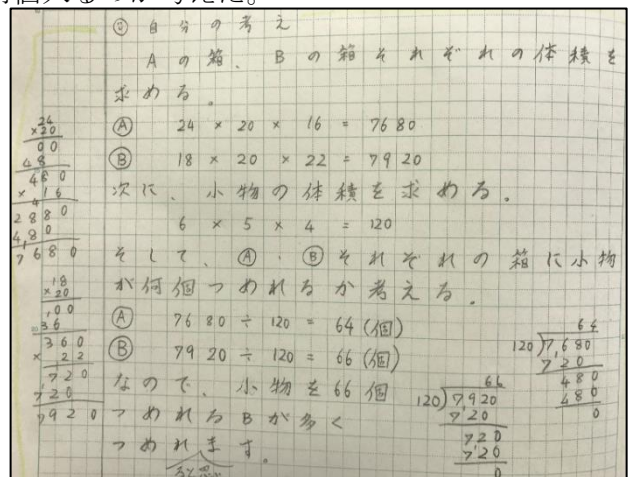 ◎ 自分の考え
Aの箱、Bの箱それぞれの体積を
求める。
Ⓐ 24 × 20 × 16 = 7680
Ⓑ 18 × 20 × 22 = 7920
次に、小物の体積を求める。
6 × 5 × 4 = 120
そして、Ⓐ・Ⓑそれぞれの箱に小物
が何個つめれるか考える。
Ⓐ 7680 ÷ 120 = 64(個)
Ⓑ 7920 ÷ 120 = 66(個)
なので、小物を66個
つめれるBが多く
つめれます。
24
×20
00
48
480
×16
2880
480
7680
18
×20
00
36
360
×22
720
720
7920
66
120)7920
720
720
720
0
64
120)7680
720
480
480
0